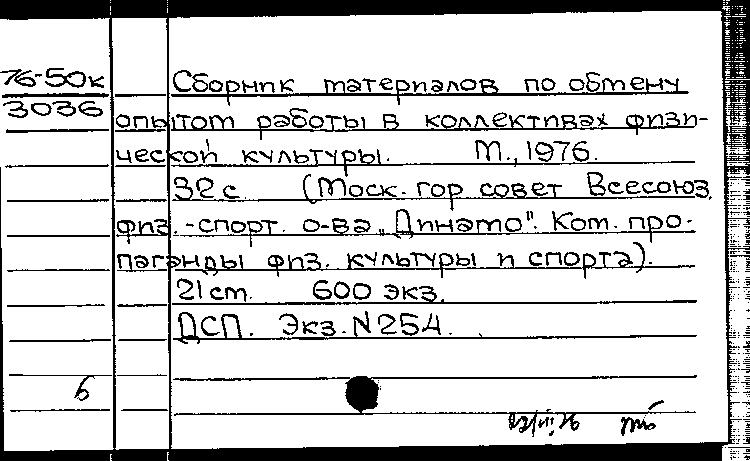 76-50к
3036
Сборник материалов по обмену
опытом работы в коллективах физи-
ческой культуры. М., 1976.
32 с (Моск. гор совет Всесоюз.
физ.-спорт. о-ва „Динамо". Ком. про-
паганды физ. культуры и спорта).
21 cm. 600 экз.
ДСП. Экз. N 254.
б